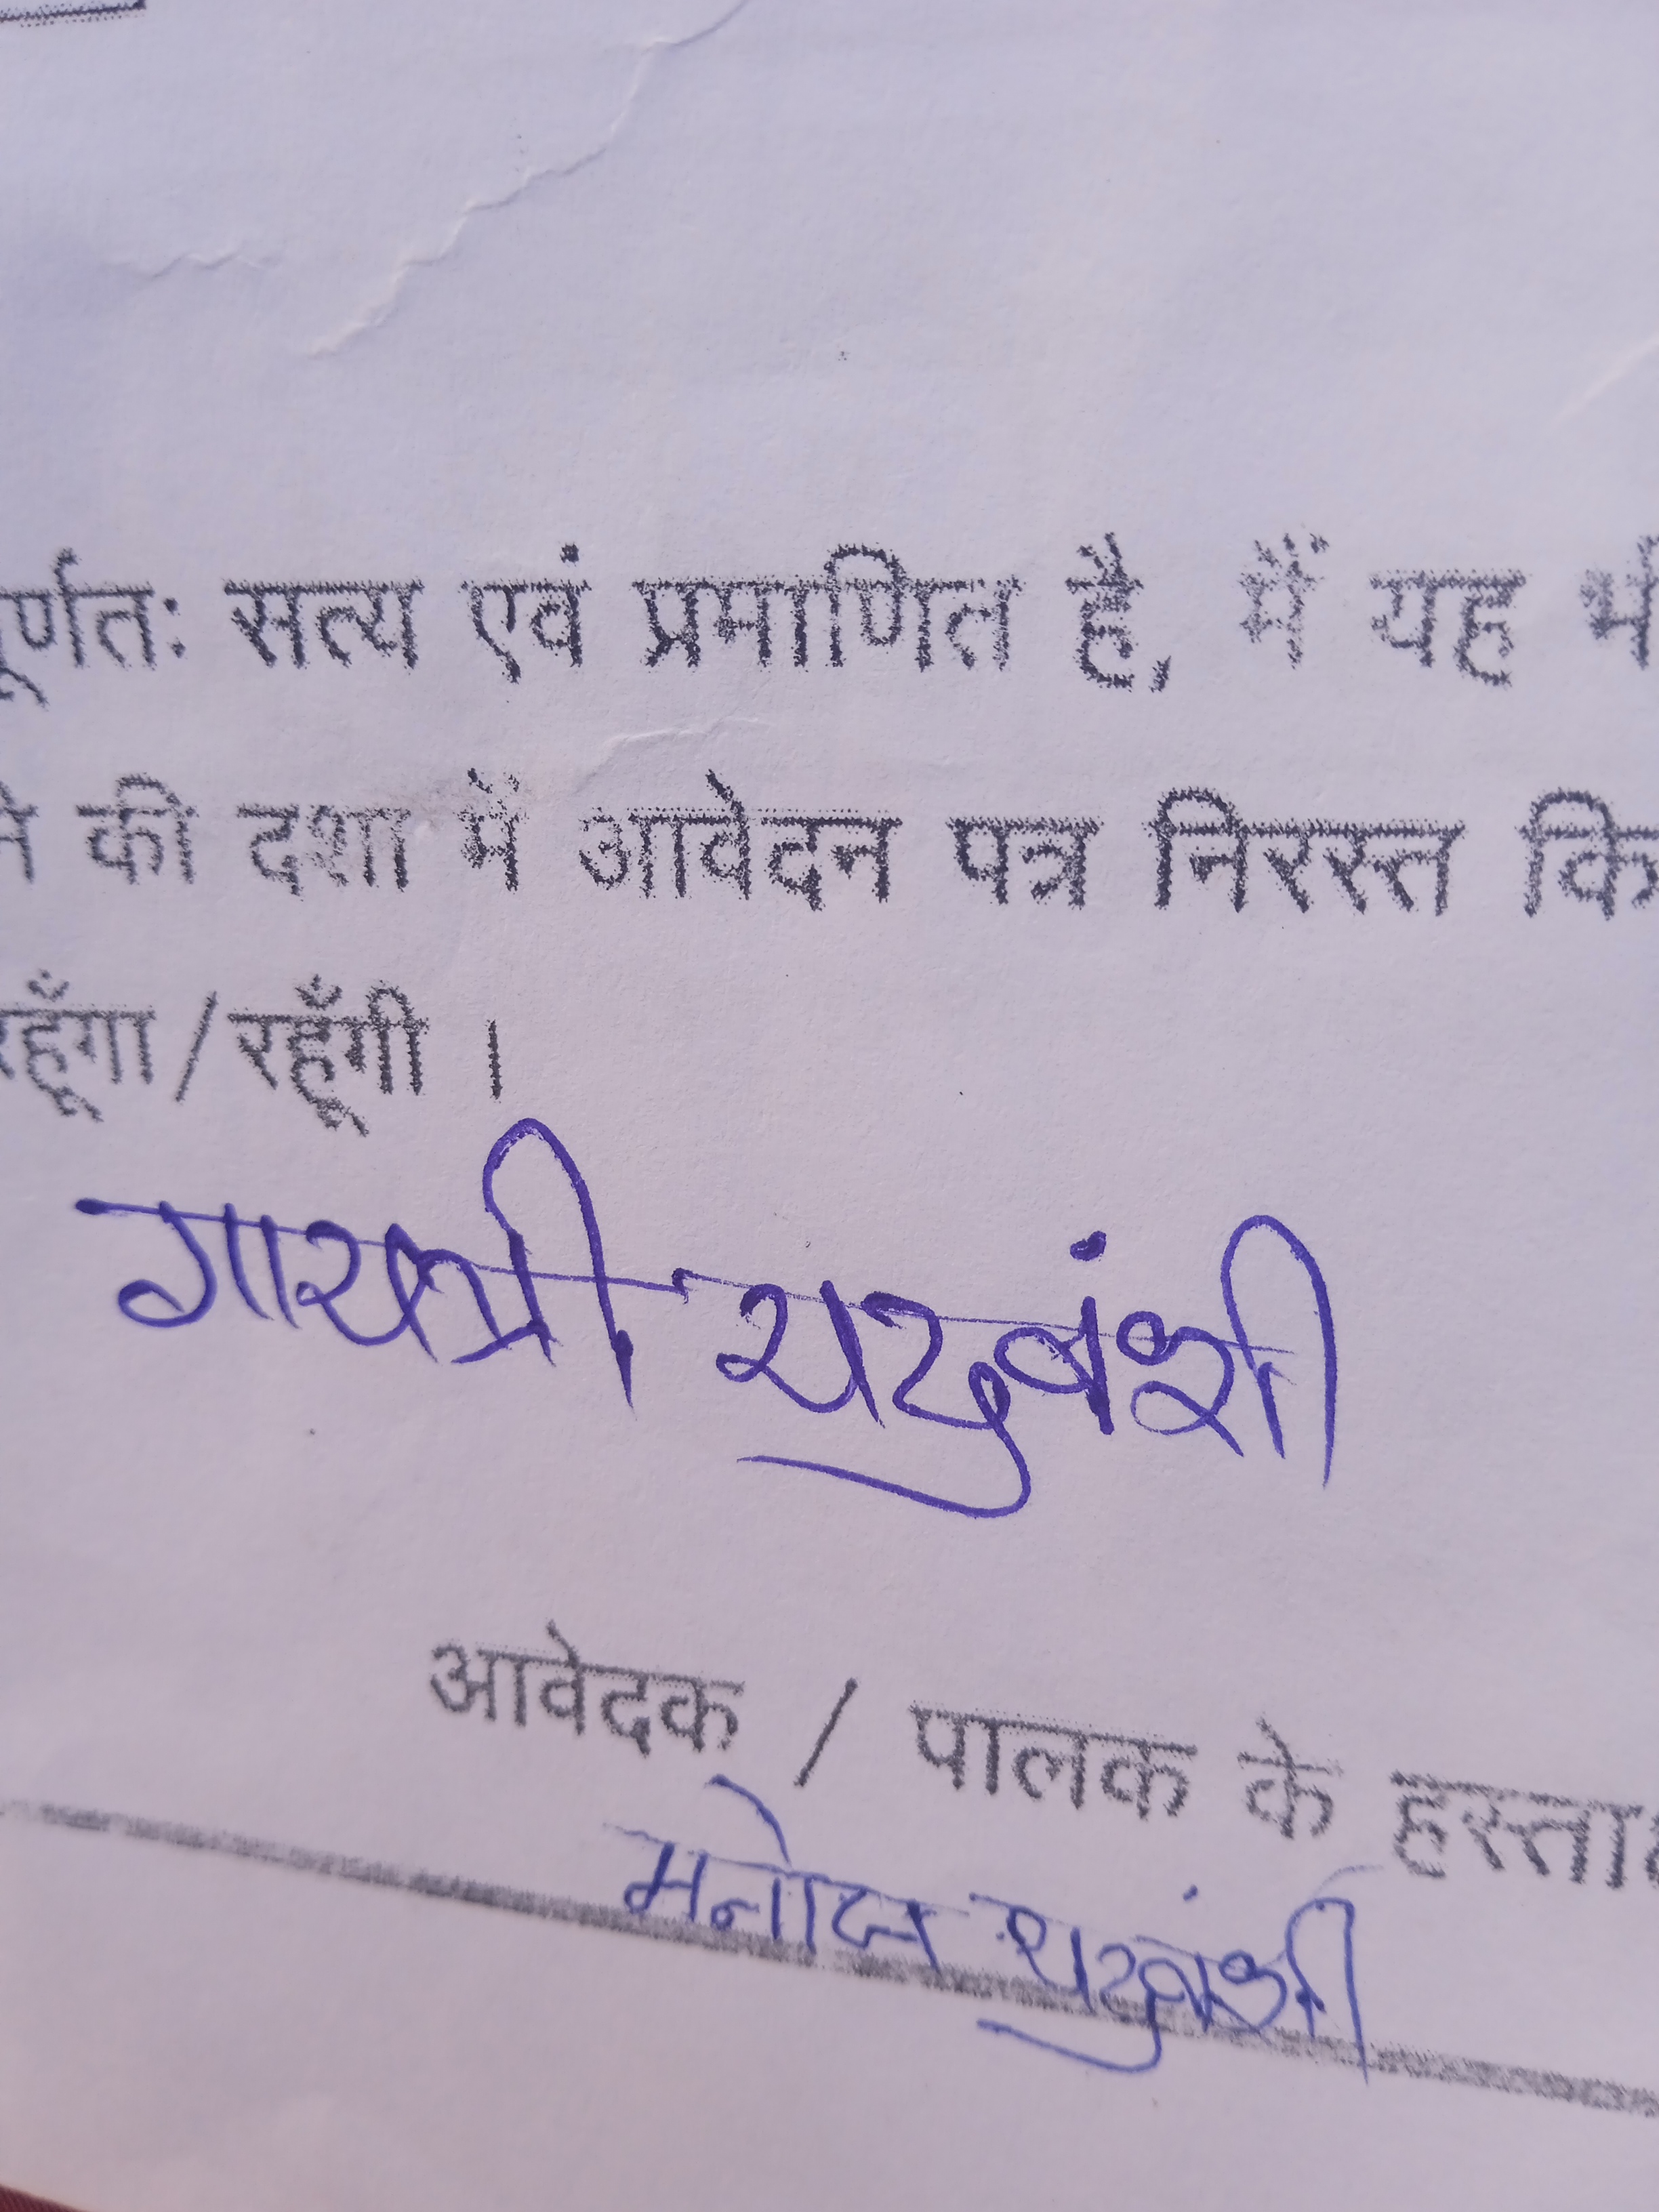 पूर्णतः सत्य एवं प्रमाणित है, मैं यह भी
की दशा में आवेदन पत्र निरस्त
रहूँगा / रहूँगी ।
गायत्री यदुवंशी
आवेदक / पालक के
यदुवंशी